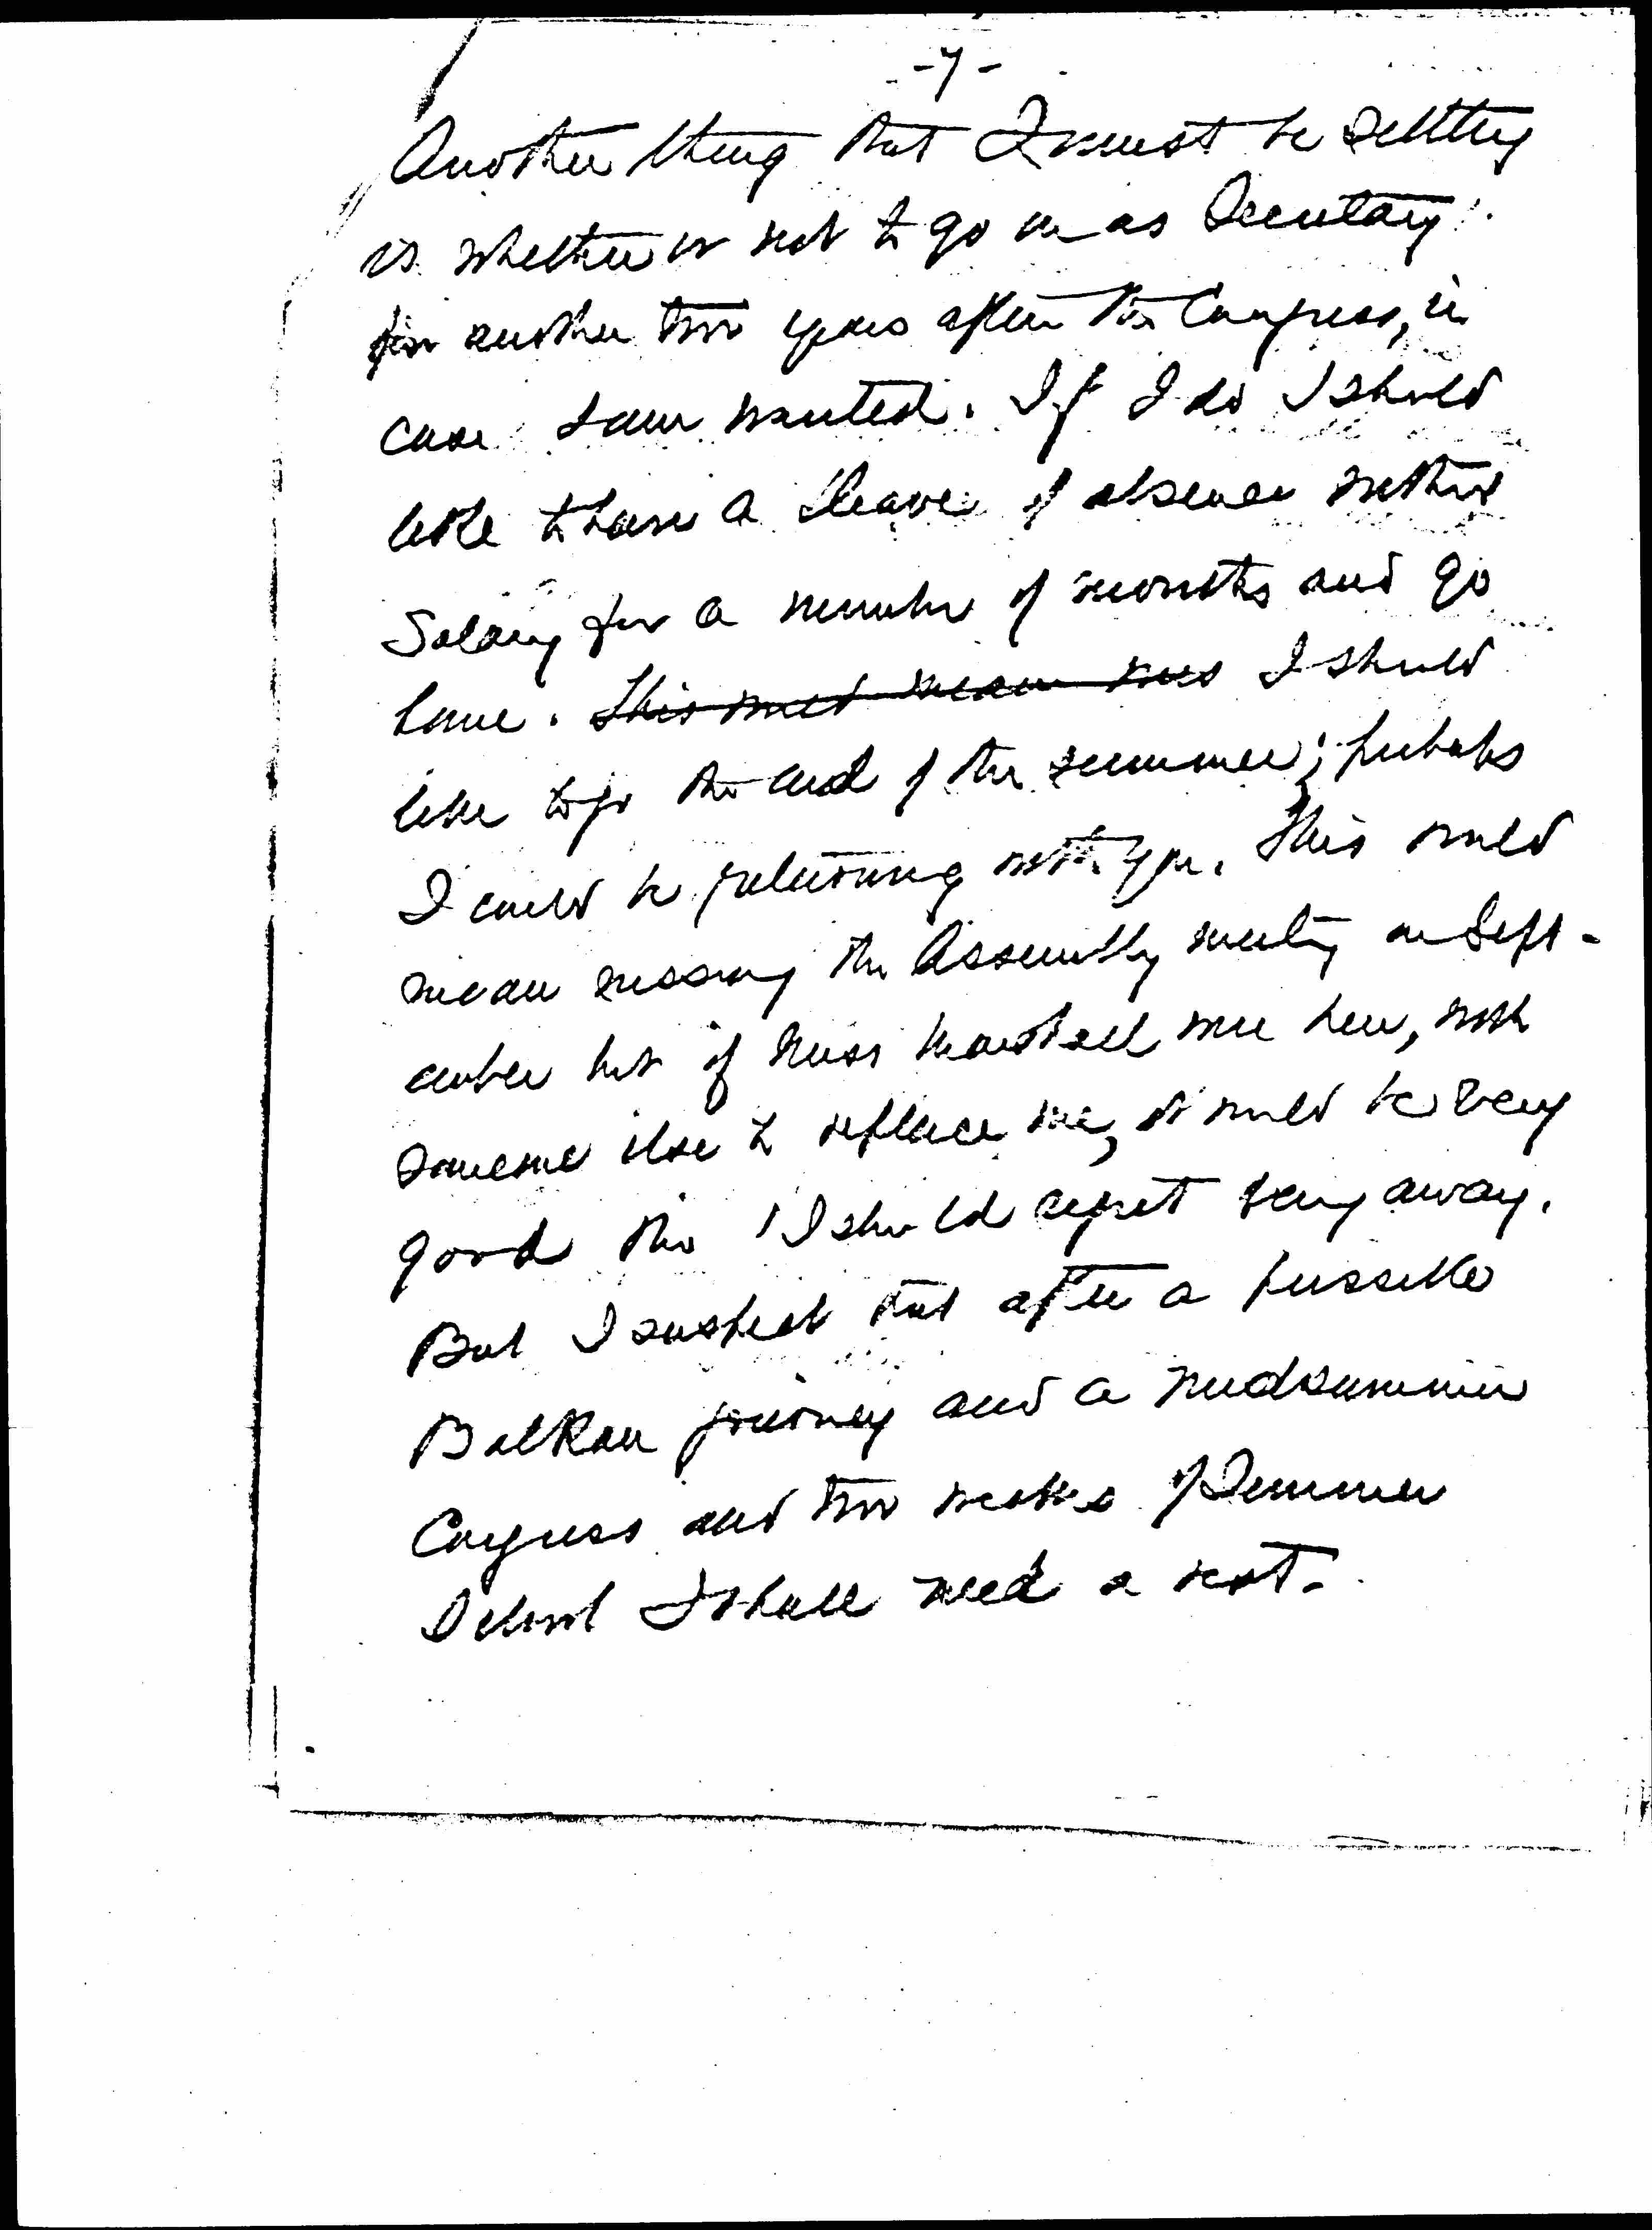 -7-
Another thing that I must be settling
is whether or not to go on as Secretary
for another two years after the Congress, in
case I am wanted. If I do I should
like to have a leave of absence without
Salary for a number of months and go
home. ~~This would mean~~ I should
like to go the end of the summer; perhaps
I could be returning with you. This would
mean missing the Assembly meeting in Sept-
ember but if Miss Marshall were here, with
someone else to replace me, it would be very
good tho' I should regret being away.
But I suspect that after a possible
Balkan journey and a midsummer
Congress and two weeks of Summer
School I shall need a rest.